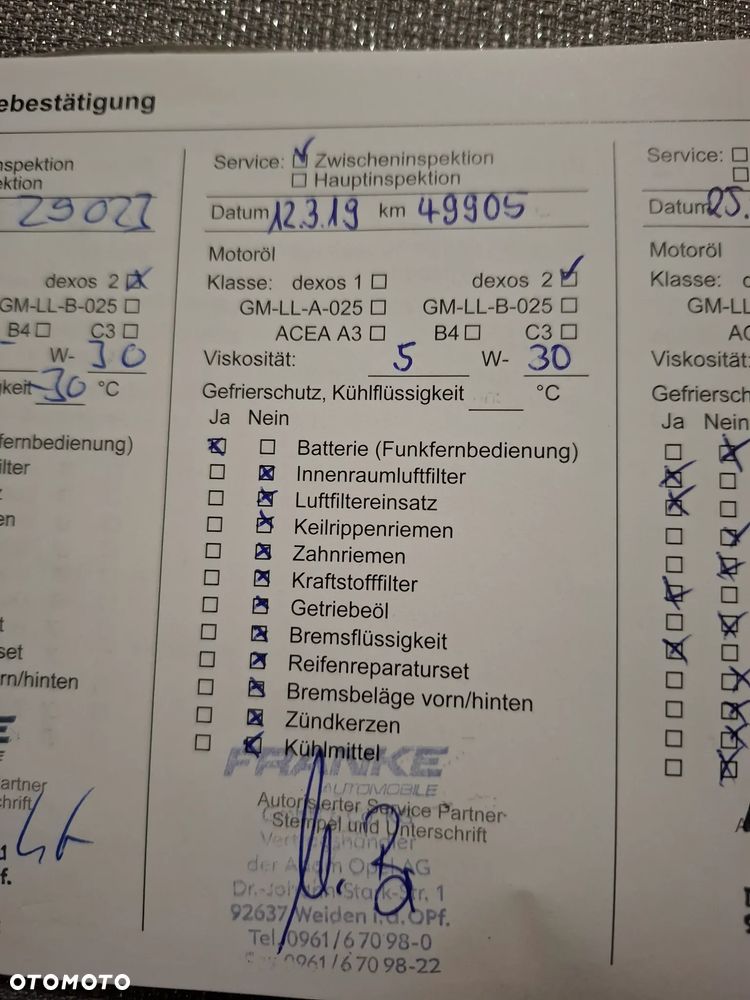 ebestätigung
nspektion
ektion
29027
dexos 2
GM-LL-B-025
B4 C3
W- 30
gkeit -30 °C
fernbedienung)
ilter
z
en
t
set
rn/hinten
artner
hrift
f.
Service: Zwischeninspektion
Hauptinspektion
Datum 12.3.19 km 49905
Motoröl
Klasse: dexos 1 dexos 2
GM-LL-A-025 GM-LL-B-025
ACEA A3 B4 C3
Viskosität: 5 W- 30
Gefrierschutz, Kühlflüssigkeit °C
Ja Nein
Batterie (Funkfernbedienung)
Innenraumluftfilter
Luftfiltereinsatz
Keilrippenriemen
Zahnriemen
Kraftstofffilter
Getriebeöl
Bremsflüssigkeit
Reifenreparaturset
Bremsbeläge vorn/hinten
Zündkerzen
Kühlmittel
FRANKE
AUTOMOBILE
Autorisierter Service Partner
Stempel und Unterschrift
Vertragshändler
der Adam Opel AG
Dr.-Johann-Stark-Str. 1
92637 Weiden i.d.OPf.
Tel. 0961/6 70 98-0
0961/6 70 98-22
Service:
Datum 25.
Motoröl
Klasse:
GM-LL
AC
Viskosität:
Gefriersch
Ja Nein
OTOMOTO